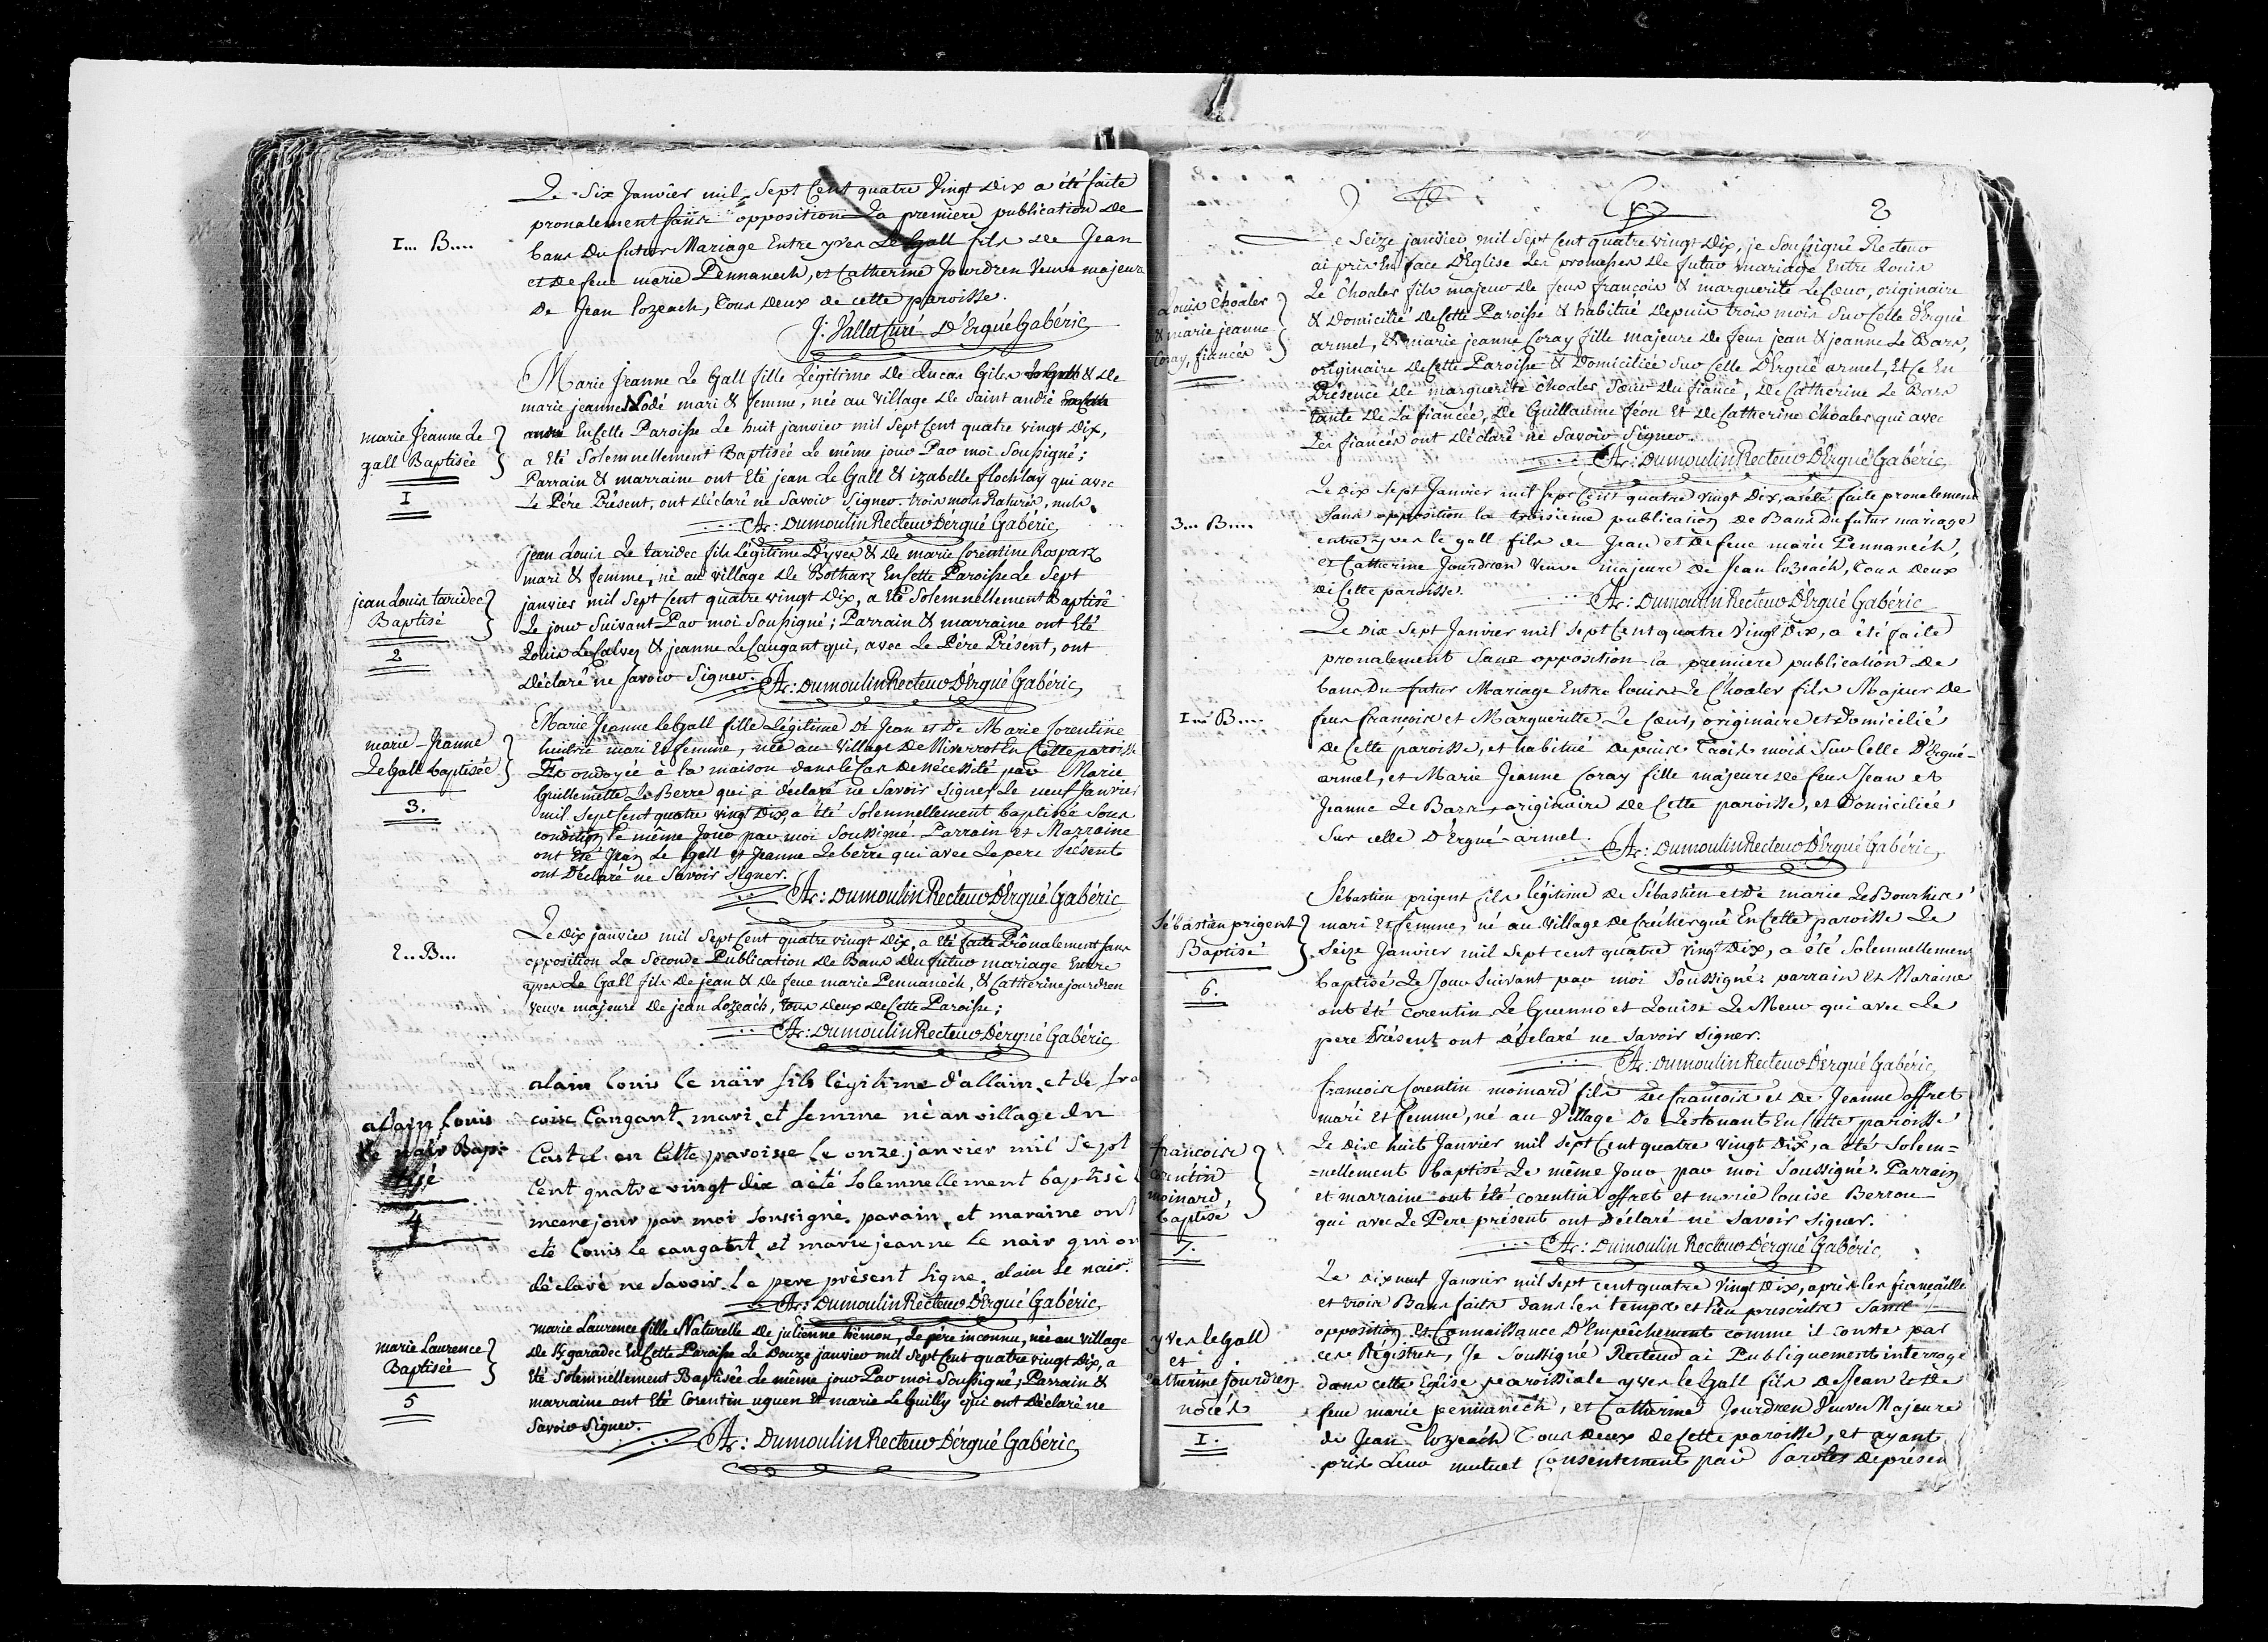 Le Six Janvier mil Sept Cent quatre Vingt Dix a été faite
pronalement sans opposition La premiere publication de
I... B....
bans Du futur Mariage Entre yves Le Gall fils de Jean
et de feue marie Pennanech, et Catherine Jourdren Veuve majeure
De Jean Lozeach, tous deux de cette paroisse.
J: Vallet Curé D'Ergué Gabéric
Marie Jeanne Le Gall fille Légitime de Lucas Giles & de
marie jeanne Lodé mari & femme, née au village de Saint andré
EnCette Paroisse Le huit janvier mil Sept Cent quatre vingt Dix,
a Eté Solemnellement Baptisée Le même jour Par moi Soussigné;
Parrain & marraine ont Eté jean Le Gall & izabelle flochlay qui avec
Le Pére Présent, ont déclaré ne Savoir Signer. trois mots Raturés, nuls.
marie Jeanne Le
gall Baptisée
I
Ar: Dumoulin Recteur D'ergué Gabéric
jean Louis Le taridec fils Légitime D'yves & de marie Corentine Rospars
mari & femme, né au village de Botharz EnCette Paroisse Le Sept
janvier mil Sept Cent quatre vingt Dix, a Eté Solemnellement Baptisé
Le jour Suivant Par moi Soussigné; Parrain & marraine ont Eté
Louis LeCalvez & jeanne LeCaugant qui, avec Le Pére Présent, ont
déclaré ne Savoir Signer.
jean Louis taridec
Baptisé
2
Ar: Dumoulin Recteur D'Ergué Gabéric
Marie Jeanne LeGall fille Légitime de Jean et De Marie Corentine
mari et femme, née au Village de En Cette paroisse
Et ondoyée à la maison dans le Cas de nécessité par Marie
Guillemette Le Berre qui a declaré ne Savoir Signer Le neuf Janvier
mil Sept Cent quatre vingt Dix, a été Solemnellement baptisée Sous
condition le même Jour par moi Soussigné. Parrain et Marraine
ont Eté Jean Le Gall et Jeanne Le berre qui avec Le pere Présent
ont Déclaré ne Savoir Signer.
marie-Jeanne
LeGall baptisée
3.
Ar: Dumoulin Recteur D'Ergué Gabéric
Le Dix janvier mil Sept Cent quatre vingt Dix, a Eté faite Prônalement sans
opposition La Seconde Publication de Bans du futur mariage Entre
yves Le Gall fils de jean & de feue marie Pennanéch, & Catherine jourdren
veuve majeure de jean Lozeach, tous deux deCette Paroisse;
2.. B...
Ar: Dumoulin Recteur D'ergué Gabéric
alain louis le naïr fils légitime d'allain et de fra
coise Cangant mari et femme né au village du
Castel en Cette paroisse le onze janvier mil Sept
Cent quatre vingt dix a été Solemnellement baptisé
meme jour par moi Soussigné. parain et maraine ont
eté louis le cangant et marie jeanne le nair qui on
déclaré ne Savoir. le pere présent Signe. alain le nair.
alain louis
le nair Bap-
tisé
4
Ar: Dumoulin Recteur D'Ergué Gabéric
marie Laurence fille Naturelle de julienne hémon, Le pére inconnu, née au village
de Kgaradec EnCette Paroisse Le Douze janvier mil Sept Cent quatre vingt Dix, a
Eté Solemnellement Baptisée Le même jour Par moi Soussigné; Parrain &
marraine ont Eté Corentin uguen & marie LeGuilly qui ont déclaré ne
Savoir Signer.
marie Laurence
Baptisée
5
Ar: Dumoulin Recteur D'ergué Gabéric
2
Le Seize janvier mil Sept Cent quatre vingt Dix, je Soussigné Recteur
ai pris En face D'Eglise Les promesses de futur mariage Entre Louis
Le Choaler fils majeur de feus françois & marguerite LeCœur, originaire
& Domicilié deCette Paroisse & habitué depuis trois mois Sur Celle d'Ergué
armel, & marie jeanne Coray fille majeure de feus jean & jeanne Le Bars,
originaire deCette Paroisse & Domiciliée Sur Celle D'Ergué armel, Et Ce En
Présence de marguerite Choaler Sœur du fiancé, de Catherine Le Bars
tante de La fiancée, de Guillaume féon Et de Catherine Choaler qui avec
Les fiancés ont déclaré ne Savoir Signer.
Louis Choaler
& marie jeanne
Coray, fiancés
Ar: Dumoulin Recteur D'Ergué Gabéric
Le Dix Sept Janvier mil Sept Cent quatre vingt Dix, a été faite pronalement
Sans opposition la troisieme publication de Bans Du futur mariage
entre yves le gall fils de Jean et de feue marie Pennanéch,
et Catherine Jourdren Veuve majeure de Jean lozeach, tous deux
de Cette paroisse.
3... B....
Ar: Dumoulin Recteur D'Ergué Gabéric
Le Dix Sept Janvier mil Sept Cent quatre Vingt Dix, a été faite
pronalement Sans opposition la premiere publication de
bans Du futur Mariage Entre louis Le Choaler fils Majeur de
feus françois et Marguerite Le Cœur, originaire et Domicilié
de Cette paroisse, et habitué depuis Trois mois Sur Celle D'Ergué-
armel, et Marie Jeanne Coray fille majeure de feus Jean et
Jeanne Le Bars, originaire de Cette paroisse, et Domiciliée
Sur celle D'Ergué-armel.
I... B....
Ar: Dumoulin Recteur D'Ergué Gabéric
Sébastien prigent fils légitime de Sébastien et De marie Le Bourhis
mari et femme, né au Village de Creckergué EnCette paroisse Le
Seize Janvier mil Sept cent quatre vingt Dix, a été Solemnellement
baptisé Le Jour Suivant par moi Soussigné: parrain et Maraine
ont été corentin Le Guenno et Louise Le Meur qui avec Le
pere Présent ont déclaré ne savoir signer.
Sébastien prigent
Baptisé
6.
Ar: Dumoulin Recteur D'ergué Gabéric
francois Corentin moinard fils de francois et de Jeanne offret
mari et femme, né au Village De Lestonant En Cette paroisse
Le Dix huit Janvier mil Sept Cent quatre vingt Dix, a été Solem=
=nellement baptisé Le même Jour par moi Soussigné. Parrain
et marraine ont été corentin offret et marie louise Berrou
qui avec Le Pere présent ont Déclaré ne Savoir Signer.
francois
Corentin
moinard
baptisé
7.
Ar: Dumoulin Recteur D'ergué Gabéric
Le Dix neuf Janvier mil Sept cent quatre Vingt Dix, après les fiancailles
et trois Bans faits dans les temps et lieu prescrits Sans
opposition et Connaissance D'Empêchement comme il conste par
ces Régistres, Je Soussigné Recteur ai Publiquement interrogé
dans cette Eglise paroissiale yves le Gall fils de Jean et de
feue marie pennanéch, et Catherine Jourdren Veuve Majeure
de Jean lozeach Tous deux de Cette paroisse, et ayant
pris Leur mutuel Consentement par Paroles de présen
yves le Gall
et
Catherine Jourdren
nocés
I.